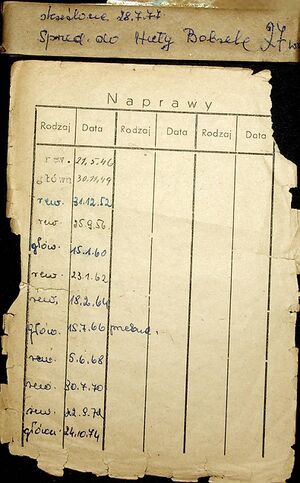 skreślone 28.7.77
Sprzed. do Huty Bobrek 27
Naprawy
Rodzaj Data Rodzaj Data Rodzaj Data
rew. 21.5.46
główn 30.11.49
rew. 31.12.52
rew. 25.9.56.
głów. 15.1.60
rew. 23.1.62
rew. 18.2.64
głów. 15.7.66
rew. 5.6.68
rew. 30.7.70
rew. 22.9.72
główn. 24.10.74